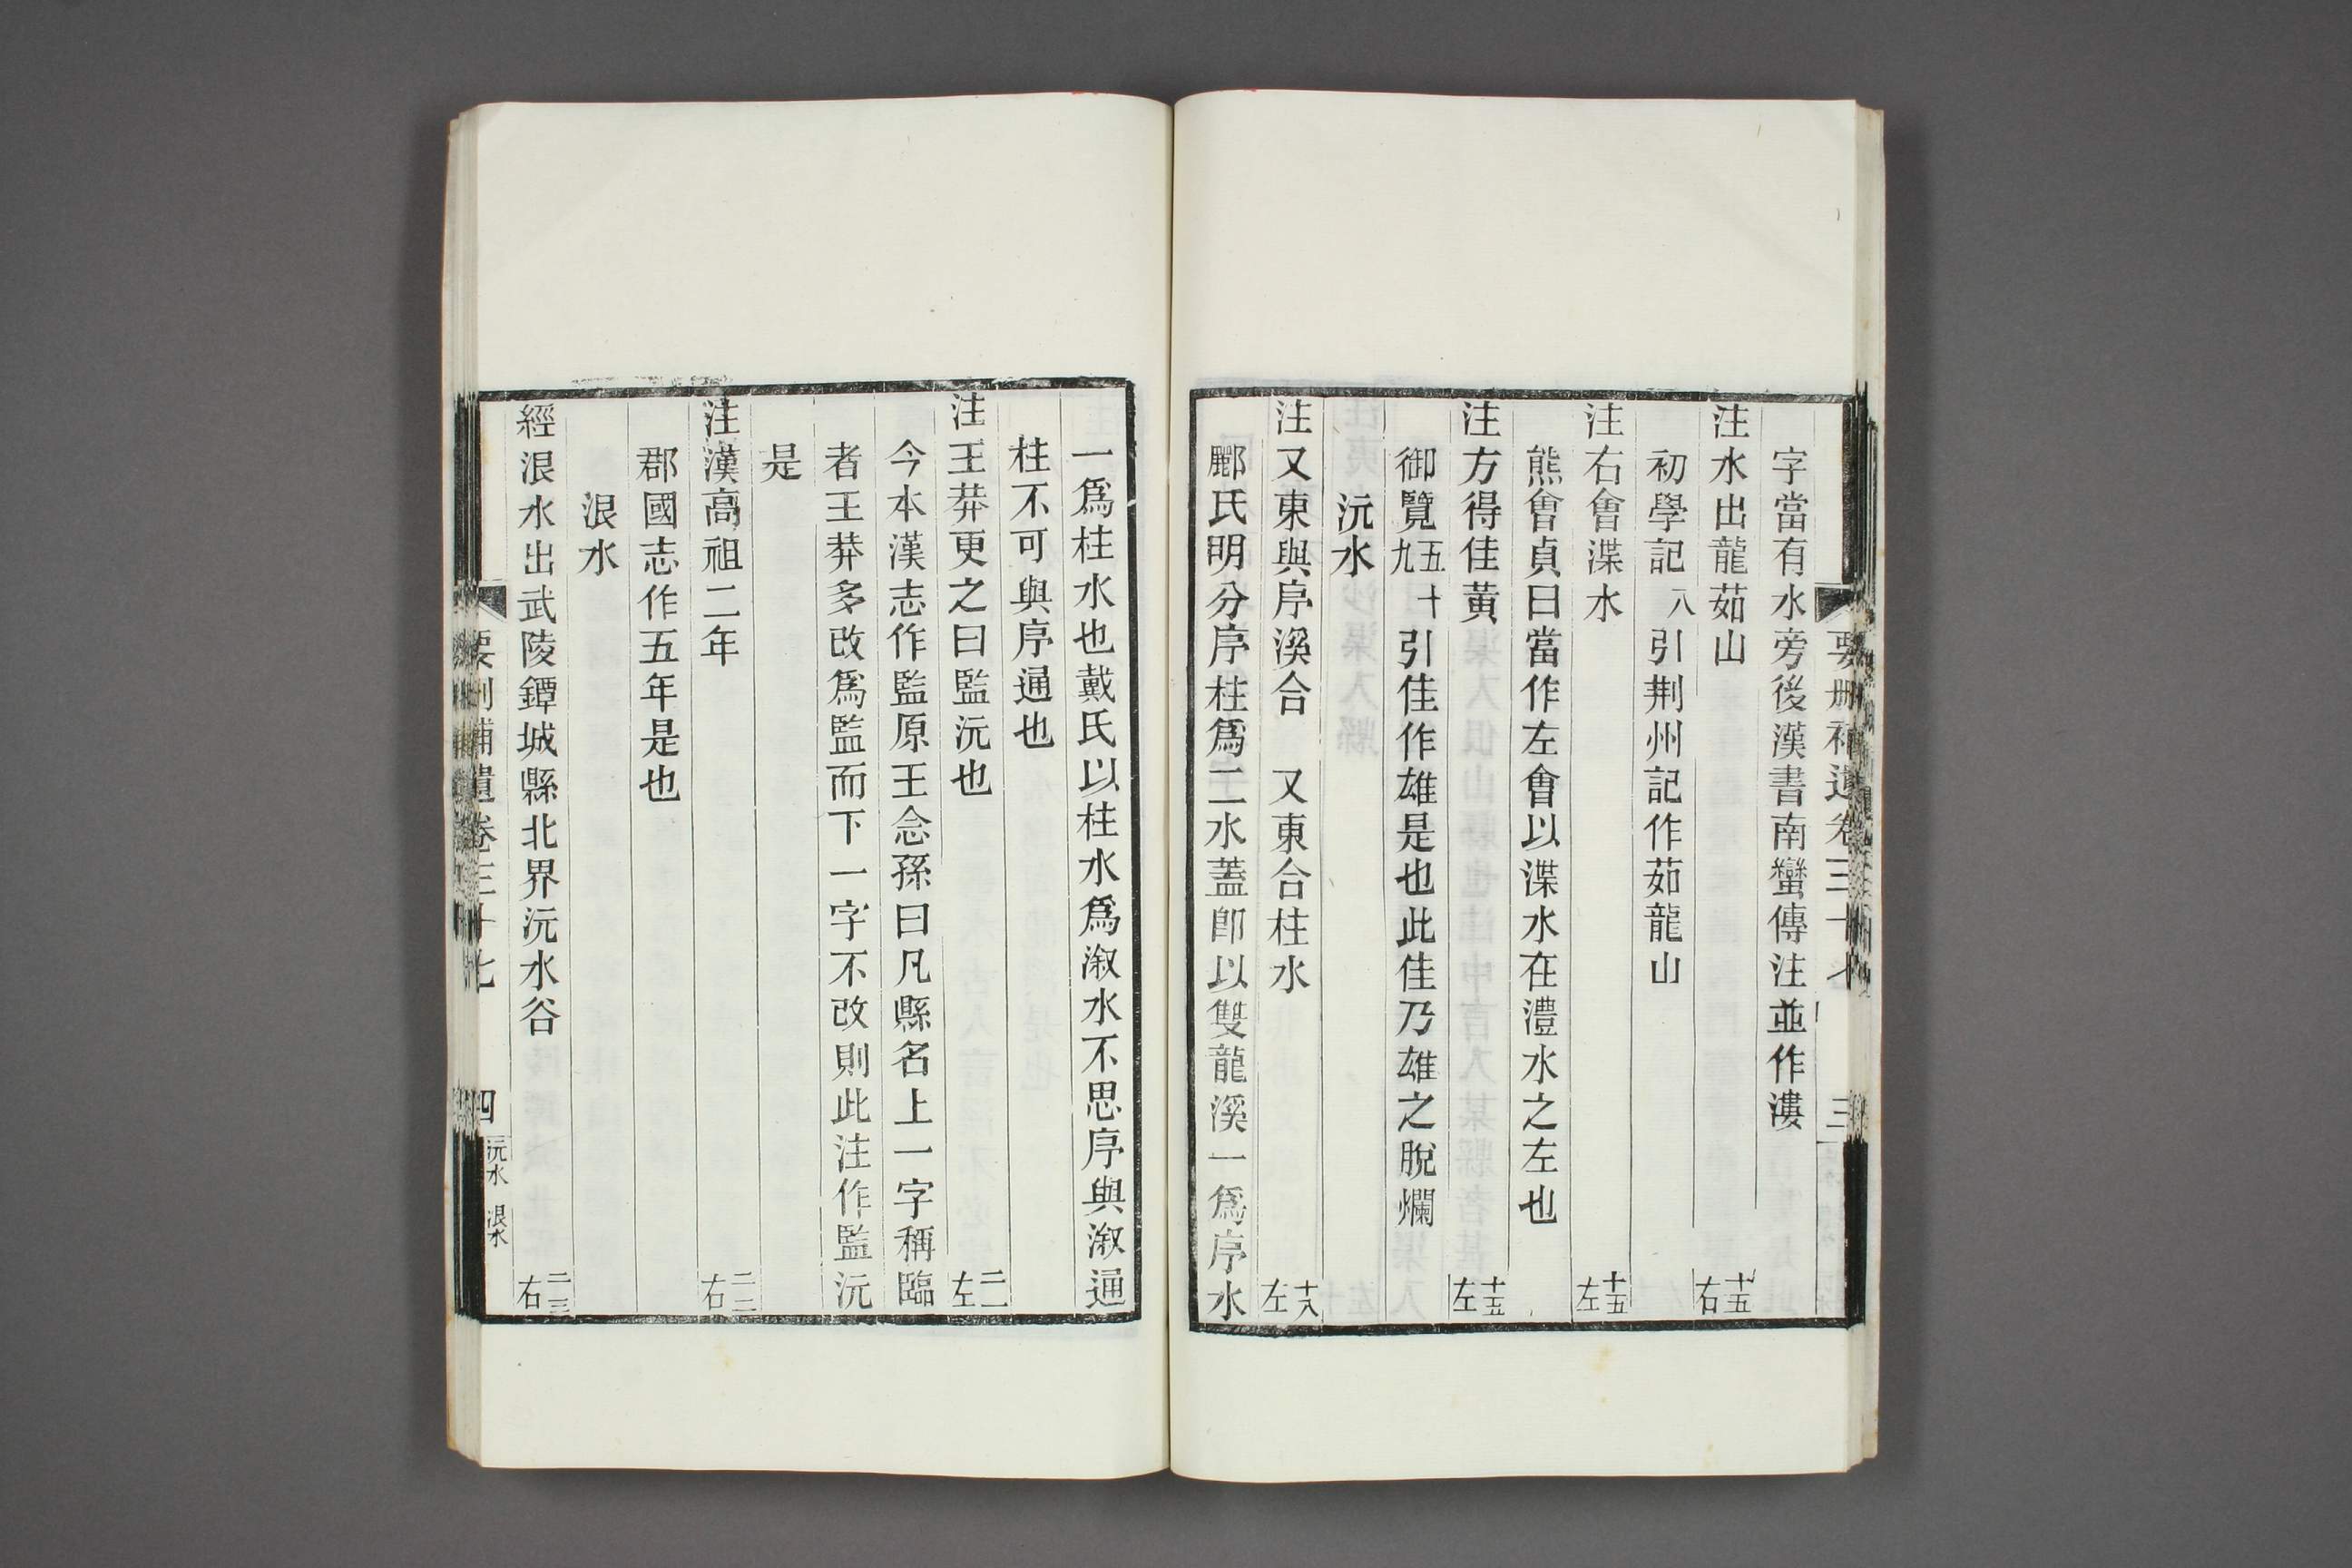 字當有水旁後漢書南蠻傳注並作漊
注水出龍茹山　十五右
初學記八引荆州記作茹龍山
注右會渫水　十五左
熊會貞曰當作左會以渫水在澧水之左也
注方得佳黃　十五左
御覽五十九引佳作雄是也此佳乃雄之脫爛
沅水
注又東與序溪合　又東合柱水　十八左
酈氏明分序柱爲二水蓋卽以雙龍溪一爲序水
一爲柱水也戴氏以柱水爲溆水不思序與溆通
柱不可與序通也
注王莽更之曰監沅也　二一左
今本漢志作監原王念孫曰凡縣名上一字稱臨
者王莽多改爲監而下一字不改則此注作監沅
是
注漢高祖二年　二二右
郡國志作五年是也
浪水
經浪水出武陵鐔城縣北界沅水谷　二三右
要刪補遺卷三十七
四
沅水　浪水